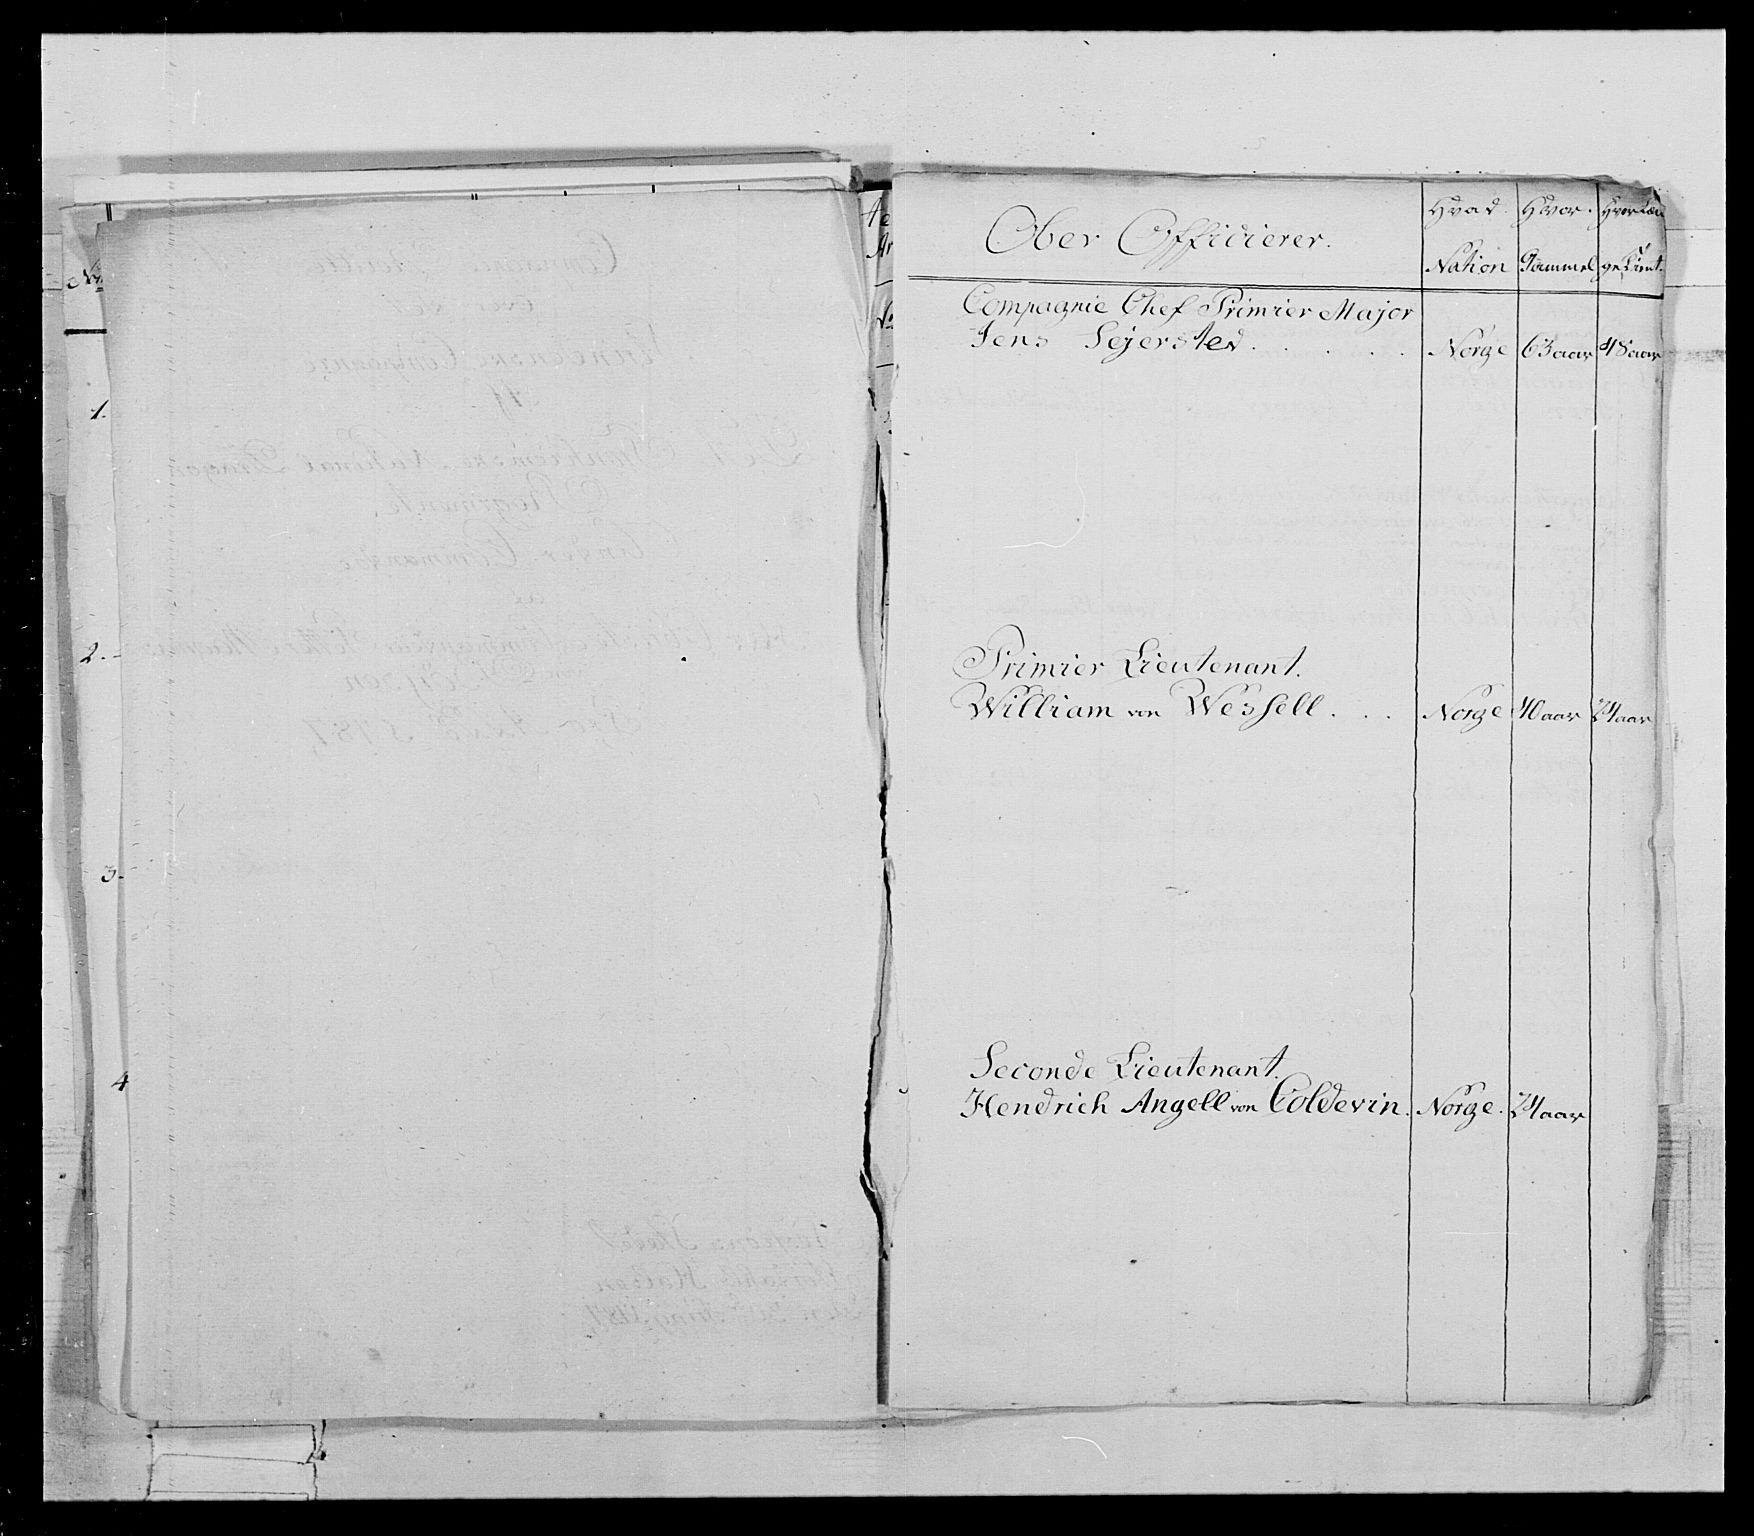 No
1.
2.
3.
4
Ober Officierer.
Hvad Nation
Hvor Gammel
Hvor Læn ge tient.
Compagnie Chef Primier Major
Jens Sejersted . . . . . Norge 63 aar 48 aar
Primier Lieutenant.
William von Wessell . . . Norge 40 aar 24 aar
Seconde Lieutenant.
Hendrich Angell von Coldevin. Norge. 24 aar